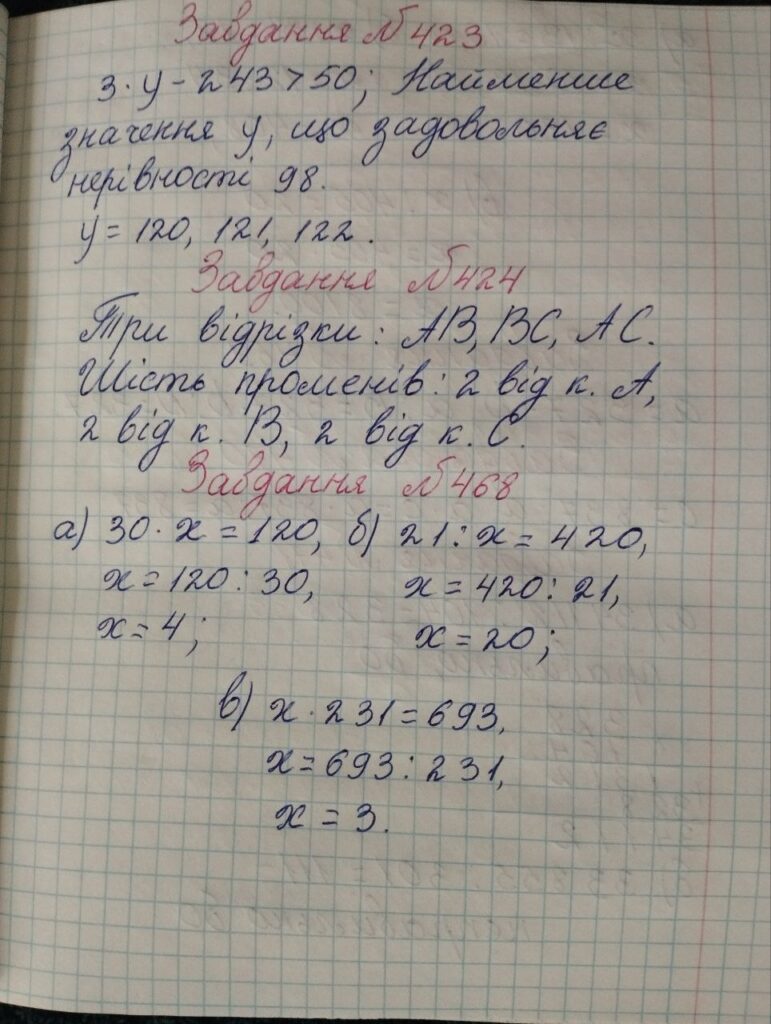 Завдання №423
3·y - 243>50; Найменше
значення y, що задовольняє
нерівності 98.
y = 120, 121, 122.
Завдання №424
Три відрізки: AB, BC, AC.
Шість променів: 2 від к. A,
2 від к. B, 2 від к. C.
Завдання №468
а) 30·x = 120, б) 21:x = 420,
x = 120:30, x = 420:21,
x = 4; x = 20;
в) x·231 = 693,
x = 693:231,
x = 3.